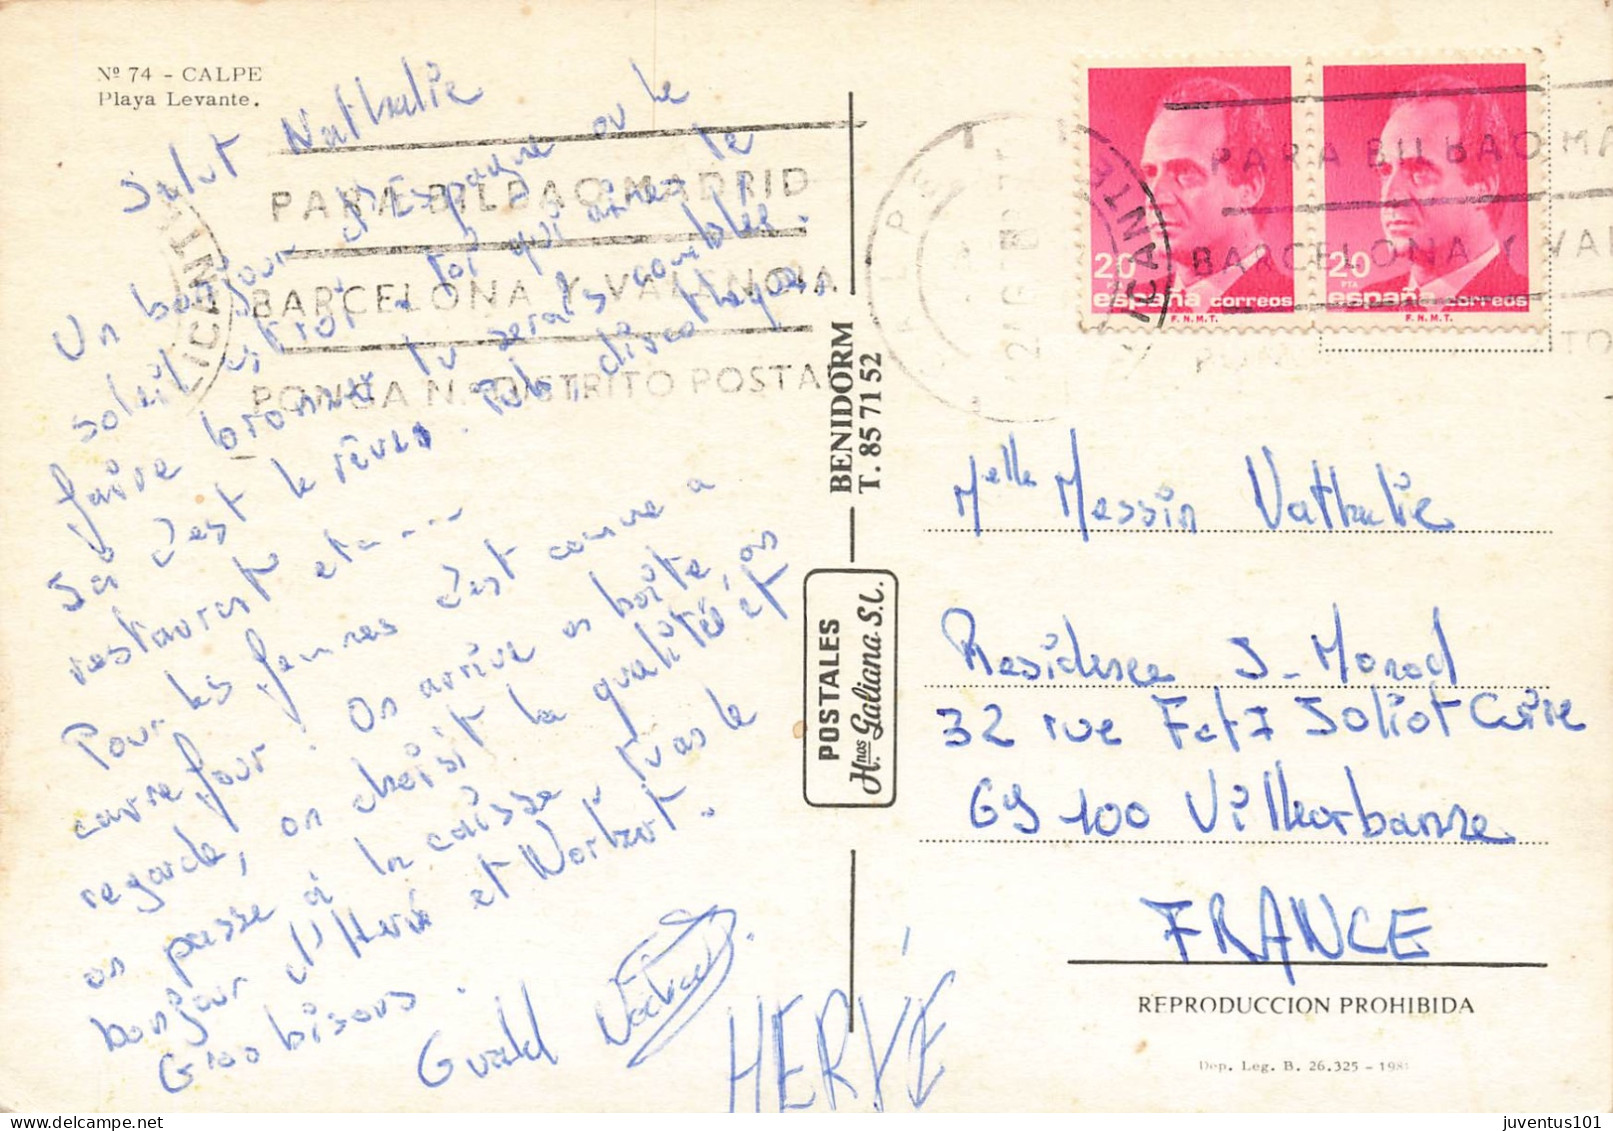 Nº 74 - CALPE
Playa Levante.
Salut Nathalie
Un bonjour d'Espagne où le
soleil est roi. Toi qui aimes te
faire bronzer tu serais comblée.
Ici c'est le rêve. Pub, discothèques,
restaurants etc ...
Pour les femmes c'est comme a
carrefour. On arrive en boîte, on
regarde, on choisit la qualité et
on passe à la caisse. Tu as le
bonjour d'Hervé et Norbert.
Gros bisous.
Norbert
HERVÉ
PARA BILBAO, MADRID
BARCELONA Y VALENCIA
PONGA N.º DISTRITO POSTAL
ALICANTE
BENIDORM
T. 85 71 52
POSTALES
Hnos Galiana S.L.
CALPE
ALICANTE
PARA BILBAO MA
BARCELONA Y VAL
20
PTA
españa correos
F.N.M.T.
20
PTA
españa correos
F.N.M.T.
Melle Messin Nathalie
Résidence J. Monod
32 rue F et I Joliot Curie
69100 Villeurbanne
FRANCE
REPRODUCCION PROHIBIDA
Dep. Leg. B. 26.325 - 198
juventus101